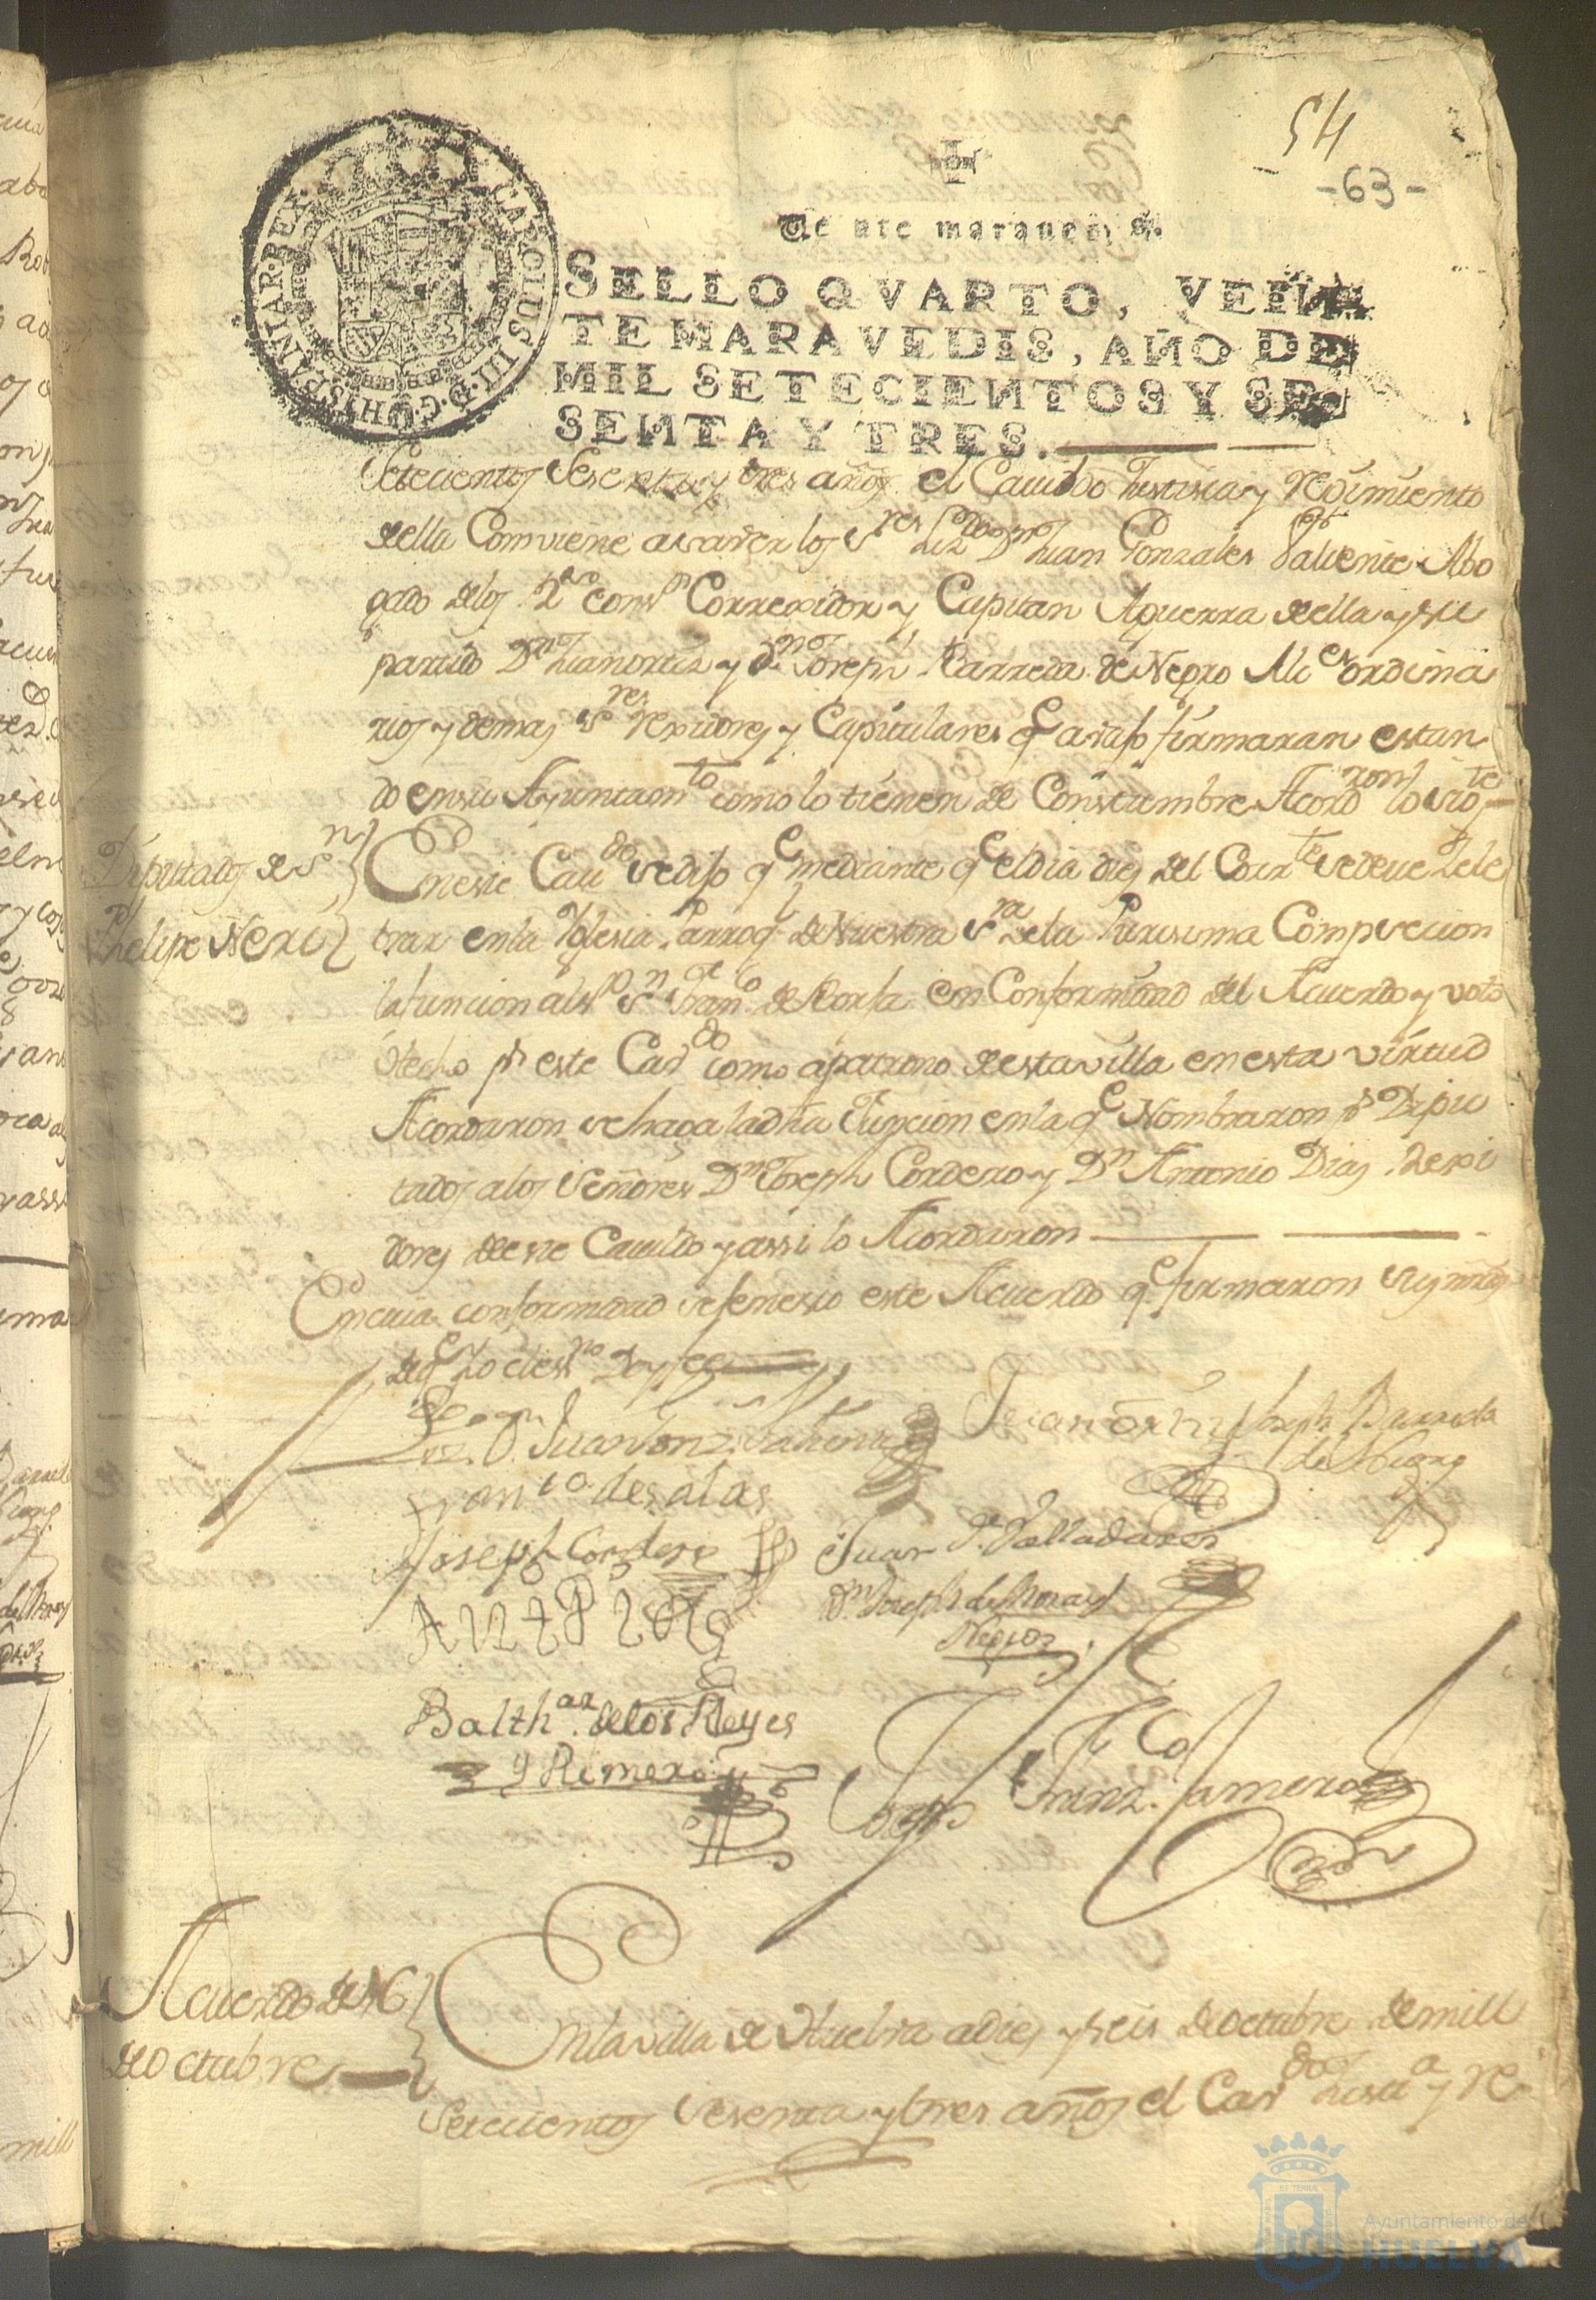 54
-63-
CAROLUS III D G HISPANIAR REX
Veinte maravedis.
SELLO QVARTO, VEIN-
TE MARAVEDIS, AÑO DE
MIL SETECIENTOS Y SE-
SENTA Y TRES.
Setecientos Sesenta y tres años el Cauildo Justisia y regimiento
della Comviene asaver los Sres Lizdo Dn Juan Gonzales Valiente Abo
gado delos Rs consps Correxidor y Capitan Aguerra della y su
partido Dn Juan ortiz y Dn Joseph Barreda de Negro Alces ordina
rios y demas Sres rexidores y Capitulares qe avajo firmaran estan
do en su Ayuntamto como lo tienen de Constumbre Acordaron lo sigte
Diputados de Sn
Phelipe Neri
En este Caudo se dijo qe mediante qe el dia dies del Corrte se deue Zele
trar en la Yglesia Parroql de Nuestra Sra de la Purisima Compsecion
la funcion al Sr Sn Franco de Borja en Conformidad del Acuerdo y voto
Hecho pr este Cavdo como apatrono de esta villa en esta virtud
Acordaron se haga la dha Funcion en la qe Nombraron pr Dipu
tados a los Señores Dn Joseph Cordero y Dn Antonio Dias Rexi
dores de este Cauildo y assi lo Acordaron
En cuia conformidad se fenesio este Acuerdo qe firmaron sus mrds
de qe Yo el esno Doy fee
Lizdo Dn Juan Gonz. Valiente
Juan Ortiz
Joseph Barreda
de Negro
Franco de salas
Joseph Cordero
Juan de Valladares
Dn Joseph de Mora y
Negron
Balthar de los Reyes
y Romero
Joseph Franz. Jamero
Acuerdo de 16
de octubre
En la villa de Huelva a dies y seis de octubre de mill
Setecientos sesenta y tres años el Cavdo Justa y re-
Ayuntamiento de
HUELVA